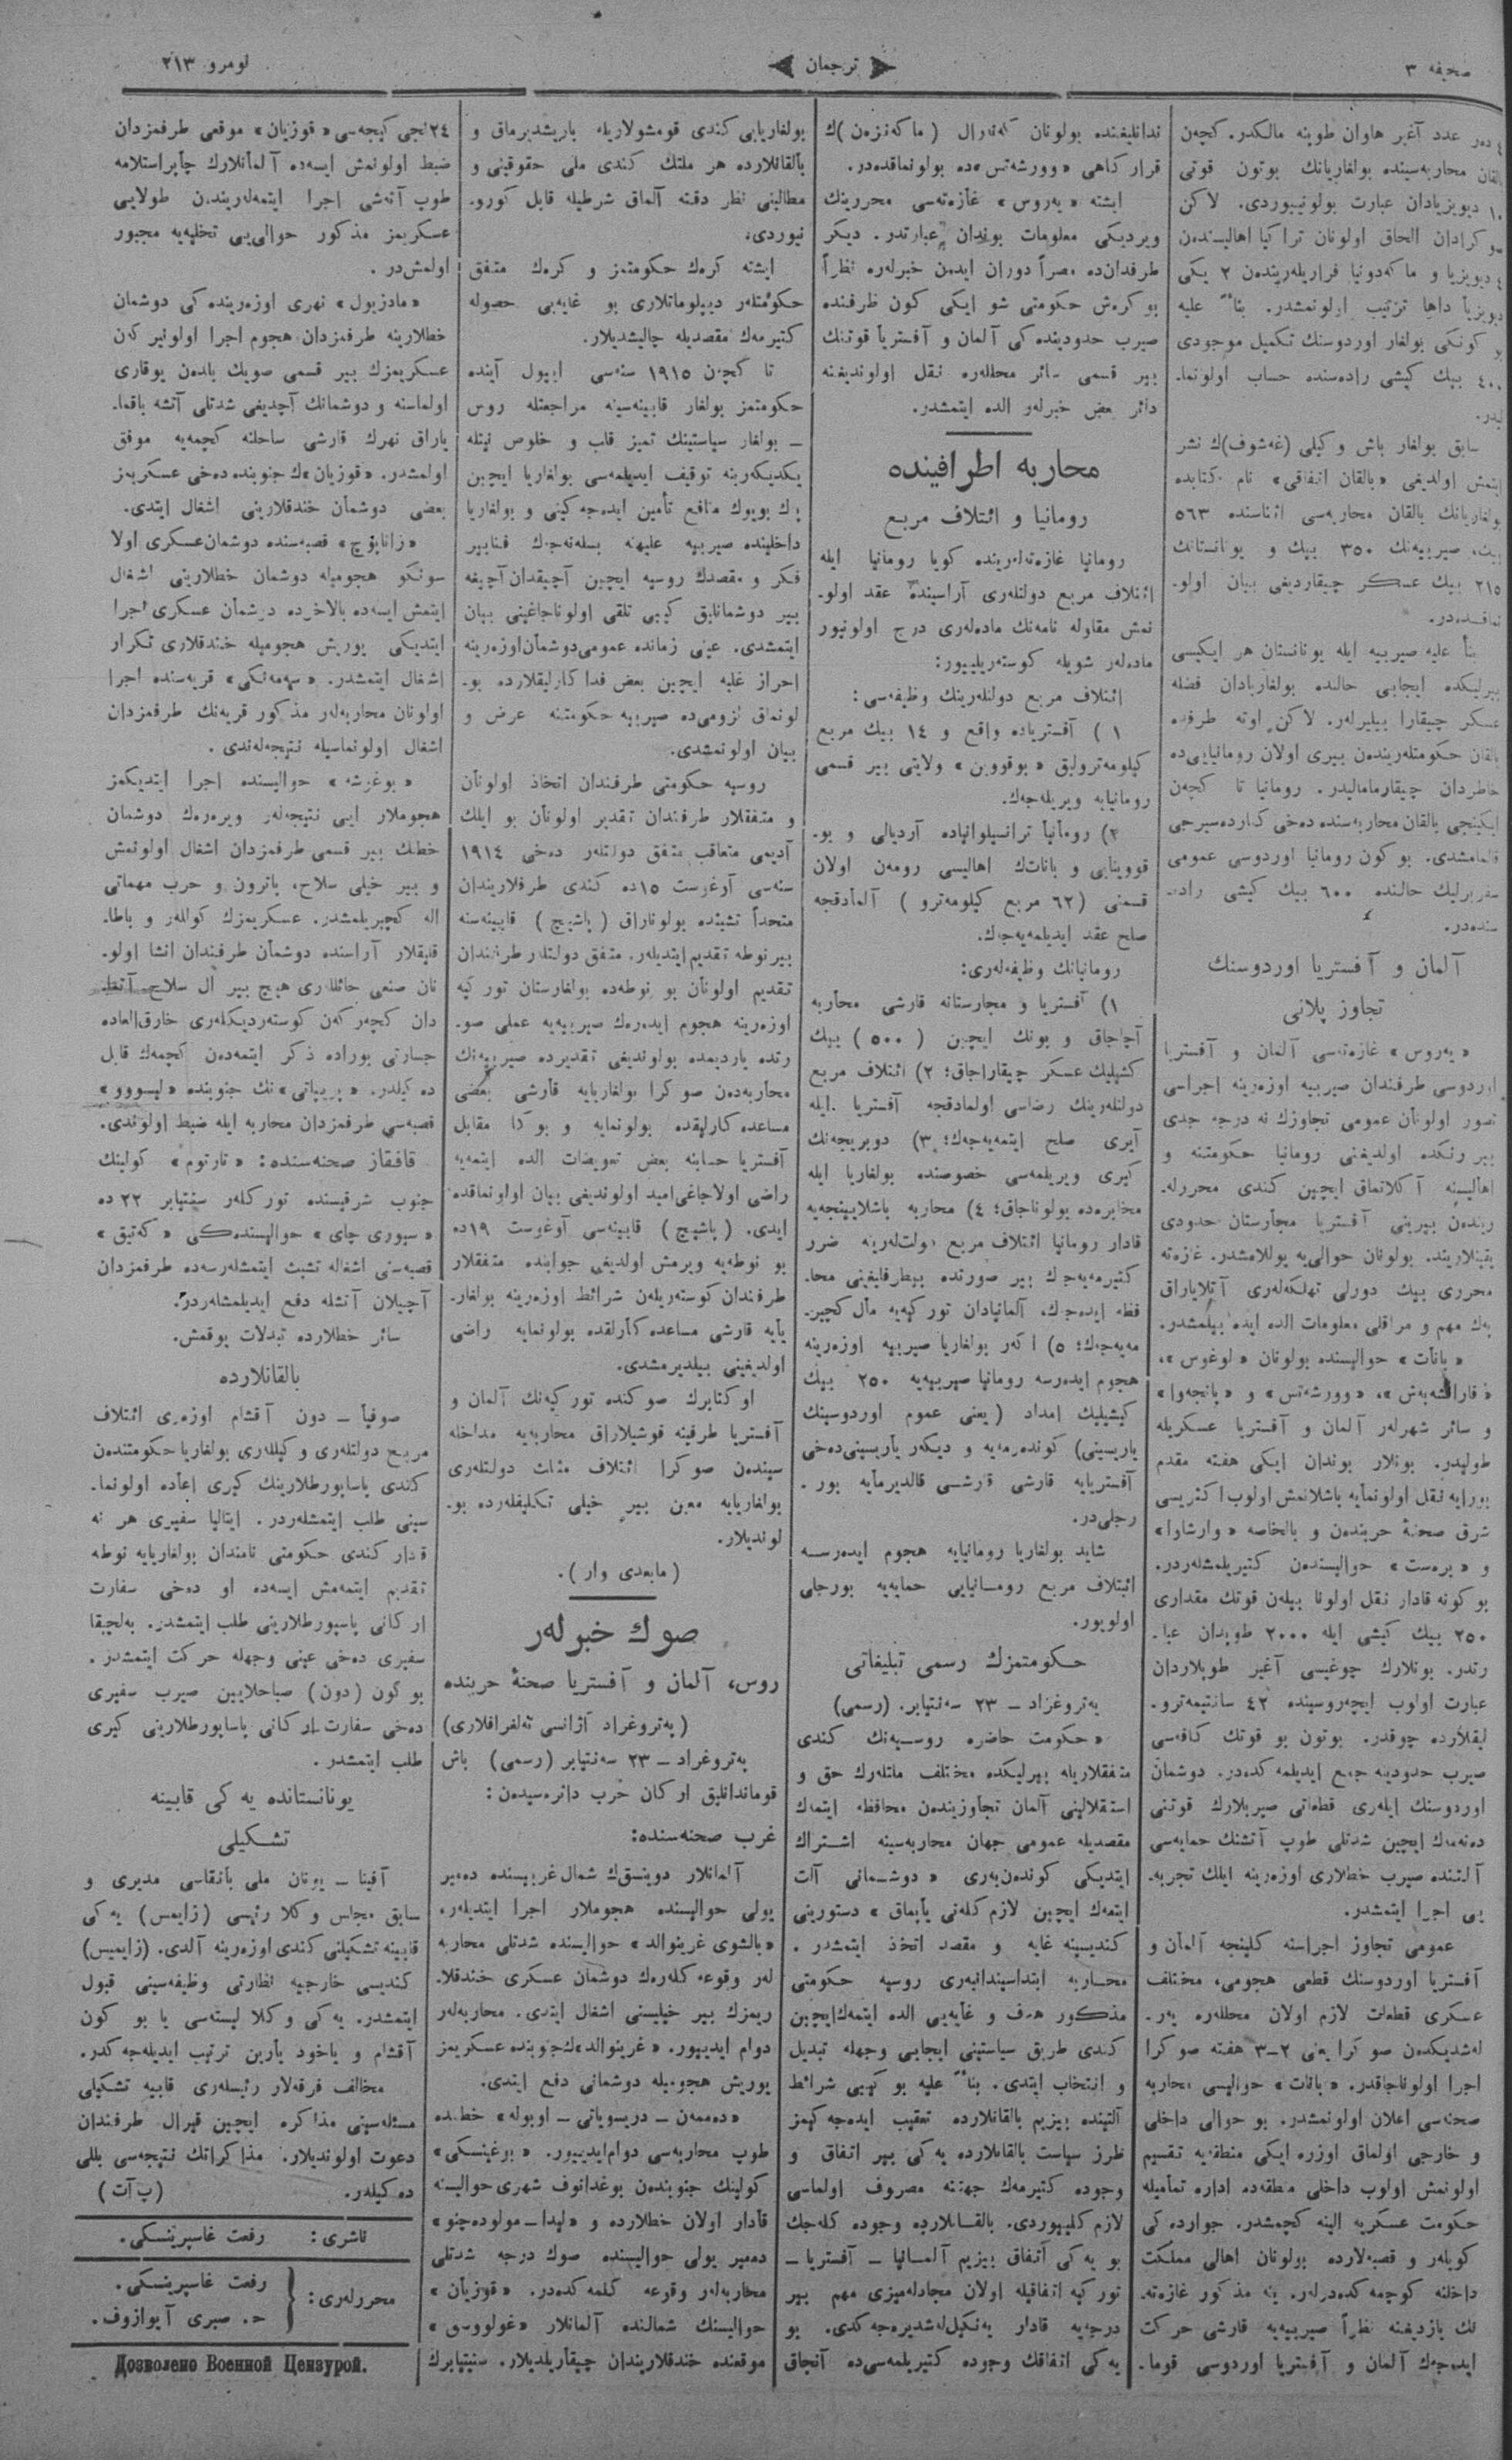 صحیفه ۳
ترجمان
نومرو ۲۱۳
٤ ده‌ر عدد آغیر هاوان طوپنه مالكدر. كچه‌ن
بالقان محاربه‌سینده بولغاریانك بوتون قوتی
۱۰ دیویزیادان عبارت بولونیوردی. لاكن
صوكرادان الحاق اولونان تراكیا اهالیسندەن
٤ دیویزیا و ماكه‌دونیا فراریلەریندەن ۲ یكی
دیویزیا داها ترتیب اولونمشدر. بناً علیه
بو كونكی بولغار اوردوسنك تكمیل موجودی
٤۰۰ بیك كیشی راده‌سنده حساب اولونما-
یدر.
سابق بولغار باش وكیلی (غه‌شوف)ك نشر
ایتمش اولدیغی «بالقان اتفاقی» نام كتابده
بولغاریانك بالقان محاربه‌سی اثناسنده ٥٦۳
بیك، صیربیه‌نك ۳٥۰ بیك و یونانستانك
۲۱٥ بیك عسكر چیقاردیغی بیان اولو-
نماقده‌در.
بناً علیه صیربیه ایله یونانستان هر ایكیسی
بیرلیكده ایجابی حالنده بولغاریادان فضله
عسكر چیقارا بیلیرلەر. لاكن اوته طرفده
بالقان حكومتلەریندەن بیری اولان رومانیایی‌ده
خاطردان چیقارمامالیدر. رومانیا تا كچەن
ایكینجی بالقان محاربه‌سنده دەخی كنارده سیرجی
قالمامشدی. بو كون رومانیا اوردوسی عمومی
سفربرلیك حالنده ٦۰۰ بیك كیشی راده-
سنده‌در.
آلمان و آفستریا اوردوسنك
تجاوز پلانی
«یه‌روس» غازه‌ته‌سی آلمان و آفستریا
اوردوسی طرفندان صیربیه اوزه‌رینه اجراسی
تصور اولونان عمومی تجاوزك نه درجه جدی
بیر رنكده اولدیغنی رومانیا حكومتنه و
اهالیسنه آكلاتماق ایچین كندی محررلە-
ریندەن بیرینی آفستریا مجارستان حدودی
یقینلاریند. بولونان حوالی‌یه یوللامشدر. غازه‌ته
محرری بیك دورلی تهلكه‌لەری آتلایاراق
پەك مهم و مراقلی معلومات الده ایده بیلمشدر.
«بانات» حوالیسنده بولونان «لوغوس»،
«قارانسه‌بەش»، «وورشه‌تس» و «پانجه‌وا»
و سائر شهرلەر آلمان و آفستریا عسكریله
طولیدر. بونلار بوندان ایكی هفته مقدم
بورایه نقل اولونمایه باشلانمش اولوب اكثریسی
شرق صحنۀ حربندەن و بالخاصه «وارشاوا»
و «برەست» حوالیسندەن كتیریلمشلەردر.
بو كونه قادار نقل اولونا بیلەن قوتك مقداری
۲٥۰ بیك كیشی ایله ۲۰۰۰ طوپدان عبا-
رتدر. بونلارك چوغیسی آغیر طوپلاردان
عبارت اولوب ایچه‌روسینده ٤۲ سانتیمه‌ترو-
لیقلارده چوقدر. بوتون بو قوتك كافه‌سی
صیرب حدودینه جمع ایدیلمه‌كده‌در. دوشمان
اوردوسنك ایلەری قطعاتی صیربلارك قوتنی
دەنه‌مەك ایچین شدتلی طوپ آتشنك حمایه‌سی
آلتنده صیرب خطلاری اوزه‌رینه ایلك تجربه-
یی اجرا ایتمشدر.
عمومی تجاوز اجراسنه كلینجه آلمان و
آفستریا اوردوسنك قطعی هجومی، مختلف
عسكری قطعات لازم اولان محللەره یەر-
لەشدیكدەن صوكرا یعنی ۲–۳ هفته صوكرا
اجرا اولوناجاقدر. «بانات» حوالیسی محاربه
صحنه‌سی اعلان اولونمشدر. بو حوالی داخلی
و خارجی اولماق اوزره ایكی منطقه‌یه تقسیم
اولونمش اولوب داخلی منطقه‌ده اداره تمامیله
حكومت عسكریه الینه كچمشدر. جوارده‌كی
كویلەر و قصبه‌لارده بولونان اهالی مملكت
داخلنه كوچمه‌كده‌درلەر. ینه مذكور غازه‌ته-
نك یازدیغنه نظراً صیربیه‌یه قارشی حركت
ایده‌جەك آلمان و آفستریا اوردوسی قوما-
ندانلیغنده بولونان گەنه‌رال (ماكه‌نزه‌ن)ك
قرار كاهی «وورشه‌تس»ده بولونماقده‌در.
ایشته «یه‌روس» غازه‌ته‌سی محررینك
ویردیكی معلومات بوندان عبارتدر. دیكر
طرفدان‌ده مصراً دوران ایدەن خبرلەره نظراً
بو كره‌ش حكومتی شو ایكی كون ظرفنده
صیرب حدودینده‌كی آلمان و آفستریا قوتنك
بیر قسمی سائر محللەره نقل اولوندیغنه
دائر بعض خبرلەر الده ایتمشدر.
محاربه اطرافینده
رومانیا و ائتلاف مربع
رومانیا غازه‌ته‌لەرینده كویا رومانیا ایله
ائتلاف مربع دولتلەری آراسینده عقد اولو-
نمش مقاوله نامه‌نك ماده‌لەری درج اولونیور
ماده‌لەر شویله كوسته‌ریلییور:
ائتلاف مربع دولتلەرینك وظیفه‌سی:
۱) آفستریاده واقع و ۱٤ بیك مربع
كیلومه‌ترولیق «بوقووین» ولایتی بیر قسمی
رومانیایه ویریلەجەك.
۲) رومانیا ترانسیلوانیاده آردیالی و بو-
قووینایی و باناتك اهالیسی رومەن اولان
قسمنی (٦۲ مربع كیلومه‌ترو) آلمادقجه
صلح عقد ایدیلمه‌یەجەك.
رومانیانك وظیفه‌لەری:
۱) آفستریا و مجارستانه قارشی محاربه
آچاجاق و بونك ایچین (٥۰۰) بیك
كشیلیك عسكر چیقاراجاق؛ ۲) ائتلاف مربع
دولتلەرینك رضاسی اولمادقجه آفستریا ایله
آیری صلح ایتمه‌یەجەك؛ ۳) دوبریجه‌نك
كیری ویریلمه‌سی خصوصنده بولغاریا ایله
مخابره‌ده بولوناجاق؛ ٤) محاربه باشلاینجه‌یه
قادار رومانیا ائتلاف مربع دولتلەرینه ضرر
كتیرمه‌یەجك بیر صورتده بیطرفلیغنی محا-
فظه ایدەجك، آلمانیادان توركیه‌یه مال كچیر-
مه‌یەجەك؛ ٥) اكەر بولغاریا صیربیه اوزه‌رینه
هجوم ایدەرسه رومانیا صیربیه‌یه ۲٥۰ بیك
كیشیلیك امداد (یعنی عموم اوردوسینك
یاریسینی) كونده‌رمه‌یه و دیكەر یاریسینی‌دەخی
آفستریایه قارشی قارشی قالدیرمایه بور-
رجلی‌در.
شاید بولغاریا رومانیایه هجوم ایدەرسه
ائتلاف مربع رومانیایی حمایه‌یه بورجلی
اولویور.
حكومتمزك رسمی تبلیغاتی
پەتروغراد – ۲۳ سه‌نتیابر. (رسمی)
«حكومت حاضره روسیه‌نك كندی
متفقلاریله بیرلیكده مختلف ملتلەرك حق و
استقلالینی آلمان تجاوزیندەن محافظه ایتمەك
مقصدیله عمومی جهان محاربه‌سینه اشتراك
ایتدیكی كوندەن‌بەری «دوشمانی آلت
ایتمەك ایچین لازم كلەنی یاپماق» دستورینی
كندیسینه غایه و مقصد اتخاذ ایتمشدر.
محاربه ابتداسیندانبەری روسیه حكومتی
مذكور هدف و غایه‌یی الده ایتمەك‌ایچین
كندی طریق سیاستینی ایجابی وجهله تبدیل
و انتخاب ایتدی. بناً علیه بو كیبی شرائط
آلتینده بیزیم بالقانلارده تعقیب ایدەجه‌كمز
طرز سیاست بالقانلارده یەكی بیر اتفاق و
وجوده كتیرمەك جهتنه مصروف اولماسی
لازم كلییوردی. بالقانلارده وجوده كلەجك
بو یەكی اتفاق بیزیم آلمانیا – آفستریا –
توركیه اتفاقیله اولان مجادله‌میزی مهم بیر
درجه‌یه قادار یەنكیللەشدیرەجه‌كدی. بو
یەكی اتفاقك وجوده كتیریلمه‌سی‌ده آنجاق
بولغاریایی كندی قومشولاریله باریشدیرماق و
بالقانلارده هر ملتك كندی ملی حقوقینی و
مطالبنی نظر دقته آلماق شرطیله قابل كورو-
نیوردی.
ایشته كرەك حكومتمز و كرەك متفق
حكومتلەر دیپلوماتلاری بو غایه‌یی حصوله
كتیرمەك مقصدیله چالیشدیلار.
تا كچەن ۱۹۱٥ سنه‌سی اییول آینده
حكومتمز بولغار قابینه‌سینه مراجعتله روس
– بولغار سیاستینك تمیز قلب و خلوص نیتله
یكدیكەرینه توقیف ایدیلمه‌سی بولغاریا ایچین
پك بویوك منافع تأمین ایدەجه‌كینی و بولغاریا
داخلینده صیربیه علیهنه بسلەنەجەك فنابیر
فكر و مقصدك روسیه ایچین آچیقدان آچیغه
بیر دوشمانلیق كیبی تلقی اولوناجاغینی بیان
ایتمشدی. عینی زمانده عمومی‌دوشمان‌اوزه‌رینه
احراز غلبه ایچین بعض فداكارلیقلارده بو-
لونماق لزومی‌ده صیربیه حكومتینه عرض و
بیان اولونمشدی.
روسیه حكومتی طرفندان اتخاذ اولونان
و متفقلار طرفندان تقدیر اولونان بو ایلك
آدیمی متعاقب متفق دولتلەر دەخی ۱۹۱٤
سنه‌سی آوغوست ۱٥ده كندی طرفلاریندان
متحداً تشبثده بولوناراق (پاشیچ) قابینه‌سنه
بیرنوطه تقدیم‌ایتدیلەر. متفق دولتلەر طرفندان
تقدیم اولونان بو نوطه‌ده بولغارستان توركیه
اوزه‌رینه هجوم ایدەرەك صیربیه‌یه عملی صو-
رتده یاردیمده بولوندیغی تقدیرده صیربیه‌نك
محاربه‌دەن صوكرا بولغاریایه قارشی بعضی
مساعده‌كارلیقده بولونمایه و بوكا مقابل
آفستریا حسابنه بعض تعویضات الده ایتمه‌یه
راضی اولاجاغی‌امید اولوندیغی بیان اولونماقده
ایدی. (پاشیچ) قابینه‌سی آوغوست ۱۹ده
بو نوطه‌یه ویرمش اولدیغی جوابنده متفقلار
طرفندان كوسته‌ریلەن شرائط اوزه‌رینه بولغار-
یایه قارشی مساعده‌كارلقده بولونمایه راضی
اولدیغینی بیلدیرمشدی.
اوكتابرك صوكنده توركیه‌نك آلمان و
آفستریا طرفینه قوشیلاراق محاربه‌یه مداخله
سیندەن صوكرا ائتلاف مثلث دولتلەری
بولغاریایه معین بیر خیلی تكلیفلەرده بو-
لوندیلار.
(مابعدی وار).
صوك خبرلەر
روس، آلمان و آفستریا صحنۀ حربنده
(پەتروغراد آژانسی تەلغرافلاری)
پەتروغراد – ۲۳ سه‌نتیابر (رسمی) باش
قوماندانلیق اركان حرب دائره‌سیدەن:
غرب صحنه‌سنده:
آلمانلار دوینسق‌ك شمال غربیسنده دەمیر
یولی حوالیسنده هجوملار اجرا ایتدیلەر،
«بالشوی غرینوالد» حوالیسنده شدتلی محاربه
لەر وقوعه كلەرەك دوشمان عسكری خندقلا-
ریمزك بیر خیلیسنی اشغال ایتدی. محاربه‌لەر
دوام ایدییور. «غرینوالد»ك‌جنوبنده عسكریمز
یوریش هجومیله دوشمانی دفع ایتدی.
«دەممەن – دریسویاتی – اوبوله» خطنده
طوپ محاربه‌سی دوام‌ایدییور. «بوغینسكی»
كولینك جنوبندەن بوغدانوف شهری‌حوالیسنه
قادار اولان خطلارده و «لیدا–مولوده‌چنو»
دەمیر یولی حوالیسنده صوك درجه شدتلی
محاربه‌لەر وقوعه كلمه‌كده‌در. «قوزیان»
حوالیسنك شمالنده آلمانلار «غولووسق»
موقعنده خندقلاریندان چیقاریلدیلار. سنتیابرك
۲٤نجی كیجه‌سی «قوزیان» موقعی طرفمزدان
ضبط اولونمش ایسه‌ده آلمانلارك چاپراستلامه
طوپ آتەشی اجرا ایتمه‌لەریندن طولایی
عسكریمز مذكور حوالی‌یی تخلیه‌یه مجبور
اولمش‌در.
«مادزیول» نهری اوزه‌رینده‌كی دوشمان
خطلارینه طرفمزدان هجوم اجرا اولونیركەن
عسكریمزك بیر قسمی صویك بلدەن یوقاری
اولماسنه و دوشمانك آچدیغی شدتلی آتشه باقما-
یاراق نهرك قارشی ساحلنه كچمه‌یه موفق
اولمشدر. «قوزیان»ك جنوبنده دەخی عسكریمز
بعضی دوشمان خندقلارینی اشغال ایتدی.
«زاناپوچ» قصبه‌سنده دوشمان‌عسكری اولا
سونكو هجومیله دوشمان خطلارینی اشغال
ایتمش ایسه‌ده بالاخره دوشمان عسكری اجرا
ایتدیكی یوریش هجومیله خندقلاری تكرار
اشغال ایتمشدر. «سه‌مه‌نكی» قریه‌سنده اجرا
اولونان محاربه‌لەر مذكور قریه‌نك طرفمزدان
اشغال اولونماسیله نتیجه‌لەندی.
«بوغرشه» حوالیسنده اجرا ایتدیكمز
هجوملار ایی نتیجه‌لەر ویرەرەك دوشمان
خطك بیر قسمی طرفمزدان اشغال اولونمش
و بیر خیلی سلاح، پاترون و حرب مهماتی
اله كچیریلمشدر. عسكریمزك كوللەر و باطا-
قلیقلار آراسنده دوشمان طرفندان انشا اولو-
نان صنعی حائللەری هیچ بیر ال سلاح آتما-
دان كچەركەن كوسته‌ردیكلەری خارق‌العاده
جسارتی بوراده ذكر ایتمه‌دەن كچمەك قابل
دەكیلدر. «پریپاتی»نك جنوبنده «لیسووو»
قصبه‌سی طرفمزدان محاربه ایله ضبط اولوندی.
قافقاز صحنه‌سنده: «تارتوم» كولینك
جنوب شرقیسنده توركلەر سنتیابر ۲۲ده
«سیوری چای» حوالیسنده‌كی «كه‌تیق»
قصبه‌سنی اشغاله تشبث ایتمشلەرسه‌ده طرفمزدان
آچیلان آتشله دفع ایدیلمشلەردر.
سائر خطلارده تبدلات یوقمش.
بالقانلارده
صوفیا – دون آقشام اوزه‌ری ائتلاف
مربع دولتلەری وكیللەری بولغاریا حكومتندەن
كندی پاساپورطلارینك كیری اعاده اولونما-
سینی طلب ایتمشلەردر. ایتالیا سفیری هر نه
قدار كندی حكومتی نامندان بولغاریایه نوطه
تقدیم ایتمه‌مش ایسه‌ده او دەخی سفارت
اركانی پاسپورطلارینی طلب ایتمشدر. بەلچیقا
سفیری دەخی عینی وجهله حركت ایتمشدر.
بو كون (دون) صباحلایین صیرب سفیری
دەخی سفارت اركانی پاساپورطلارینی كیری
طلب ایتمشدر.
یونانستانده یەكی قابینه
تشكیلی
آفینا – یونان ملی بانقاسی مدیری و
سابق مجلس وكلا رئیسی (زایمس) یەكی
قابینه تشكیلنی كندی اوزه‌رینه آلدی. (زایمیس)
كندیسی خارجیه نظارتی وظیفه‌سینی قبول
ایتمشدر. یەكی وكلا لیسته‌سی یا بو كون
آقشام و یاخود یارین ترتیب ایدیلەجه‌كدر.
مخالف فرقه‌لار رئیسلەری قابینه تشكیلی
مسئله‌سینی مذاكره ایچین قیرال طرفندان
دعوت اولوندیلار. مذاكراتك نتیجه‌سی بللی
دەكیلەر. (پ آت)
ناشری: رفعت غاسپرینسكی.
محررلەری: رفعت غاسپرینسكی.
ح. صبری آیوازوف.
Дозволено Военной Цензурой.